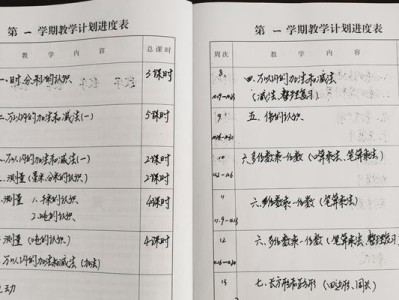 第 一 学期教学计划进度表
教 学 内 容 总课时
一、时、分、秒的认识 3课时
二、万以内的加法和减法(一) 5课时
二、万以内的加法和减法(一) 2课时
三、测量(毫米、分米的认识) 2课时
测量 1.千米的认识 4课时
2.吨的认识
测量(吨的认识) 4课时
四、万以内的加法和减法(加法)
第 一 学期教学计划进度表
周次 教 学 内 容
8 四、万以内的加法和减法
(减法、整理复习)
9 五、倍的认识
10 六、多位数乘一位数(口算乘法、笔算乘法)
11 六、多位数乘一位数(笔算乘法)
12 六、多位数乘一位数(笔算乘法、整理复习)
13 七、长方形和正方形(四边形、周长)